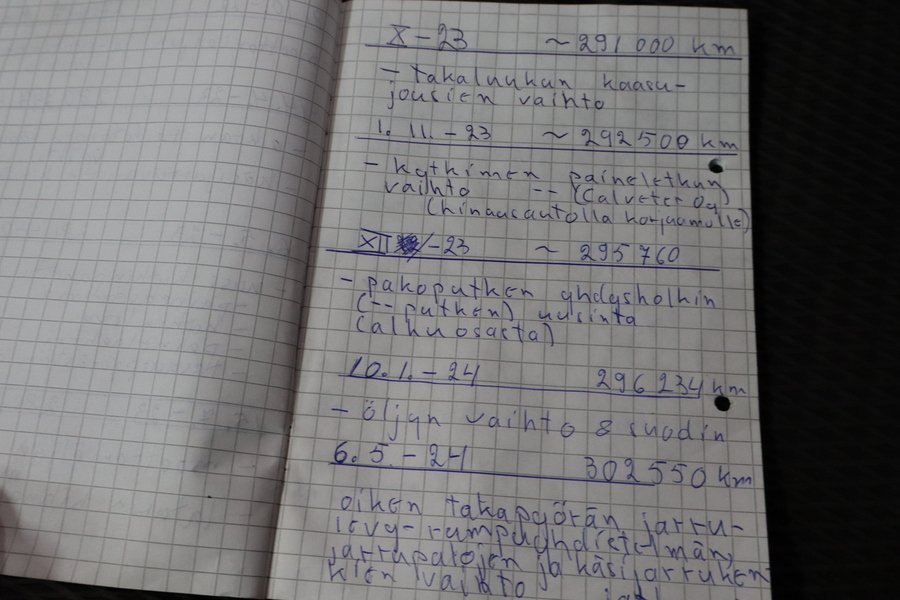 X-23 ~291 000 km
- takaluukun kaasu-
jousien vaihto
1. 11. -23 ~292500 km
- kytkimen paineletkun
vaihto -- (Calveter Oy)
(hinausautolla korjaamolle)
XII -23 ~ 295 760
- pakoputken yhdysholkin
(-- putken) uusinta
(alkuosasta)
10. 1. -24 296 234 km
- öljyn vaihto & suodin
6. 5. -24 302 550 km
oiken takapyörän jarru-
levy-rumpuyhdistelmän,
jarrupalojen ja käsijarruken-
kien vaihto